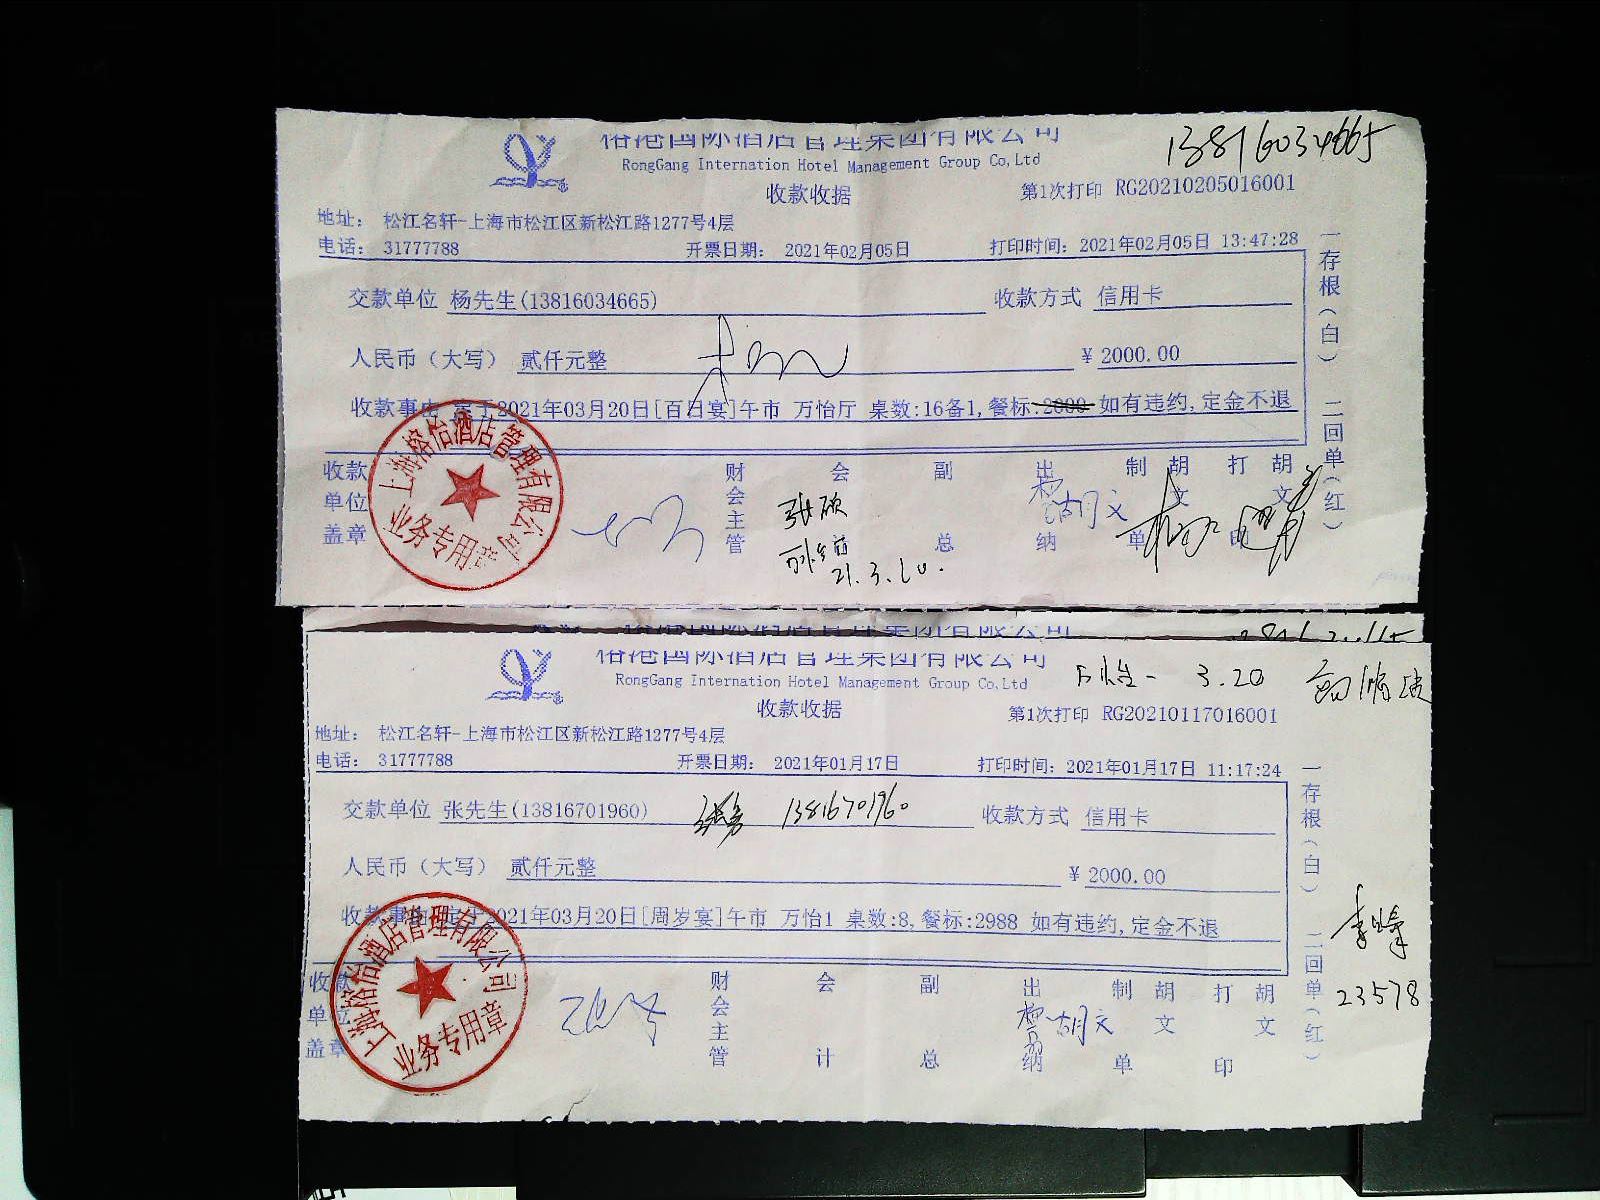 榕港国际酒店管理集团有限公司
13816034665
RongGang Internation Hotel Management Group Co,Ltd
收款收据
第1次打印 RG20210205016001
地址: 松江名轩-上海市松江区新松江路1277号4层
电话: 31777788 开票日期: 2021年02月05日 打印时间: 2021年02月05日 13:47:28
交款单位 杨先生(13816034665) 收款方式 信用卡
人民币（大写） 贰仟元整 ¥ 2000.00
收款事由 定于2021年03月20日[百日宴]午市 万怡厅 桌数:16备1,餐标:2000 如有违约,定金不退
一存根(白) 二回单(红)
收款单位盖章 财会主管 会 副总 出纳 制单 胡文 打印 胡文
张硕
胡文
21.3.20.
上海榕怡酒店管理有限公司
业务专用章
榕港国际酒店管理集团有限公司
3.20
RongGang Internation Hotel Management Group Co,Ltd
收款收据
第1次打印 RG20210117016001
地址: 松江名轩-上海市松江区新松江路1277号4层
电话: 31777788 开票日期: 2021年01月17日 打印时间: 2021年01月17日 11:17:24
交款单位 张先生(13816701960) 13816701960 收款方式 信用卡
人民币（大写） 贰仟元整 ¥ 2000.00
收款事由 定于2021年03月20日[周岁宴]午市 万怡1 桌数:8,餐标:2988 如有违约,定金不退
一存根(白) 二回单(红)
李峰
23578
收款单位盖章 财会主管 会计 副总 出纳 制单 胡文 打印 胡文
胡文
上海榕怡酒店管理有限公司
业务专用章